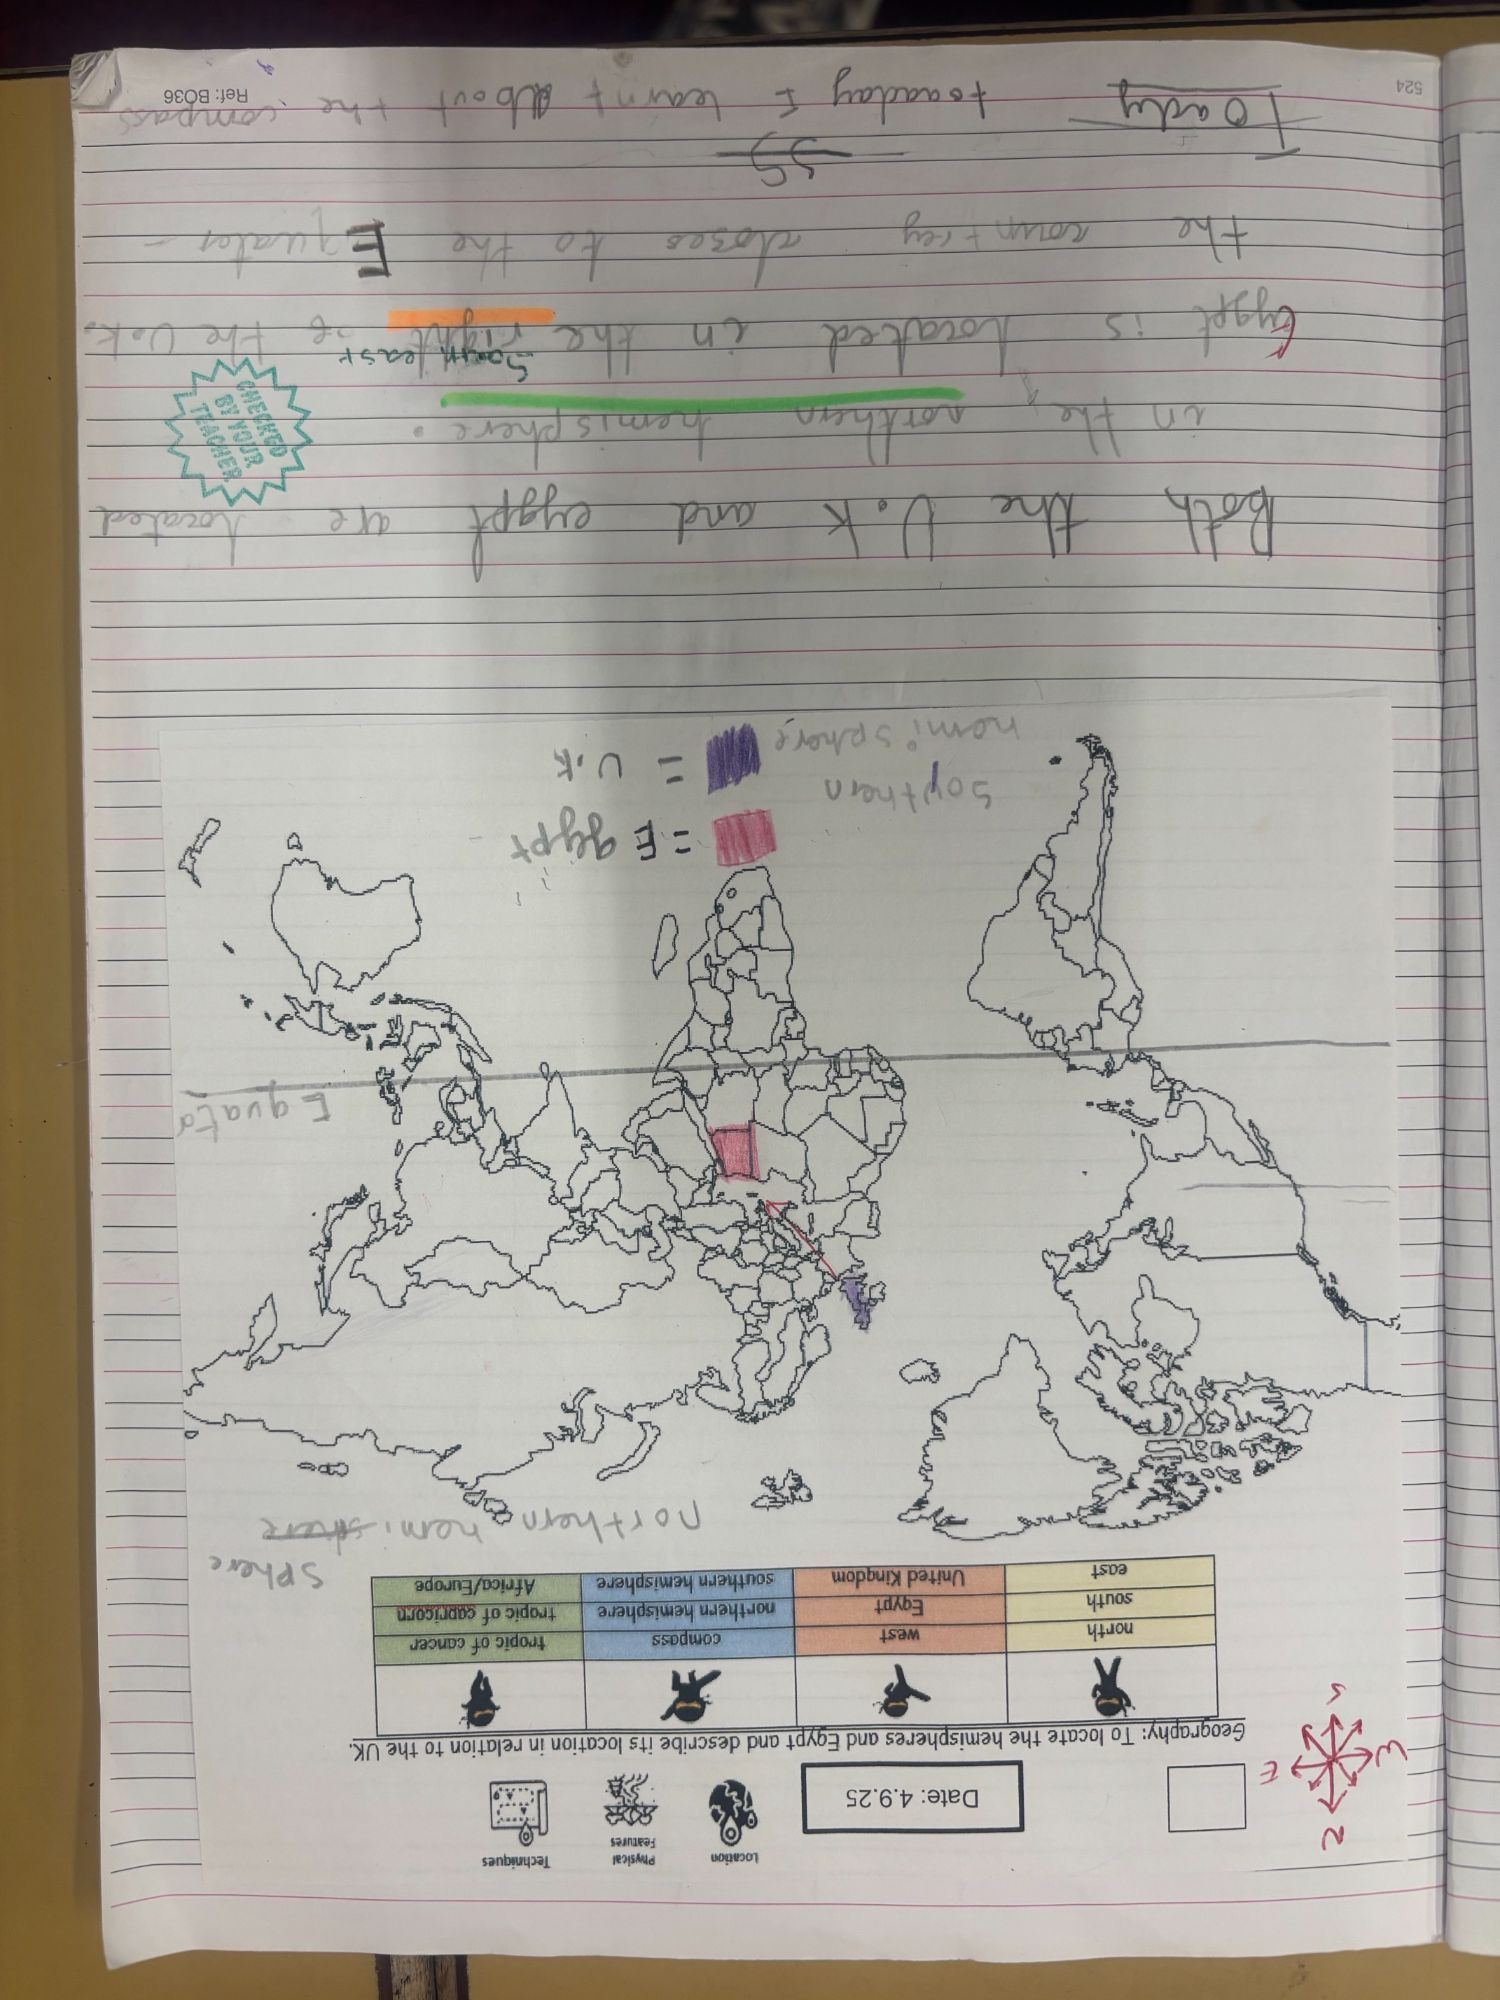 Location
Physical
Features
Techniques
Date: 4.9.25
N
W
E
S
Geography: To locate the hemispheres and Egypt and describe its location in relation to the UK.
north west compass tropic of cancer
south Egypt northern hemisphere tropic of capricorn
east United Kingdom southern hemisphere Africa/Europe
northern hemi sphere
Equato
Soythern
hemisphere
= Egypt
= U.K
Both the U.K and eygpt are located
in the northern hemisphere.
South east
Eygpt is located in the right of the U.K.
the countrey closes to the Equator
SG
Toady toaday I learnt about the compass
CHECKED
BY YOUR
TEACHER
524
Ref: BO36